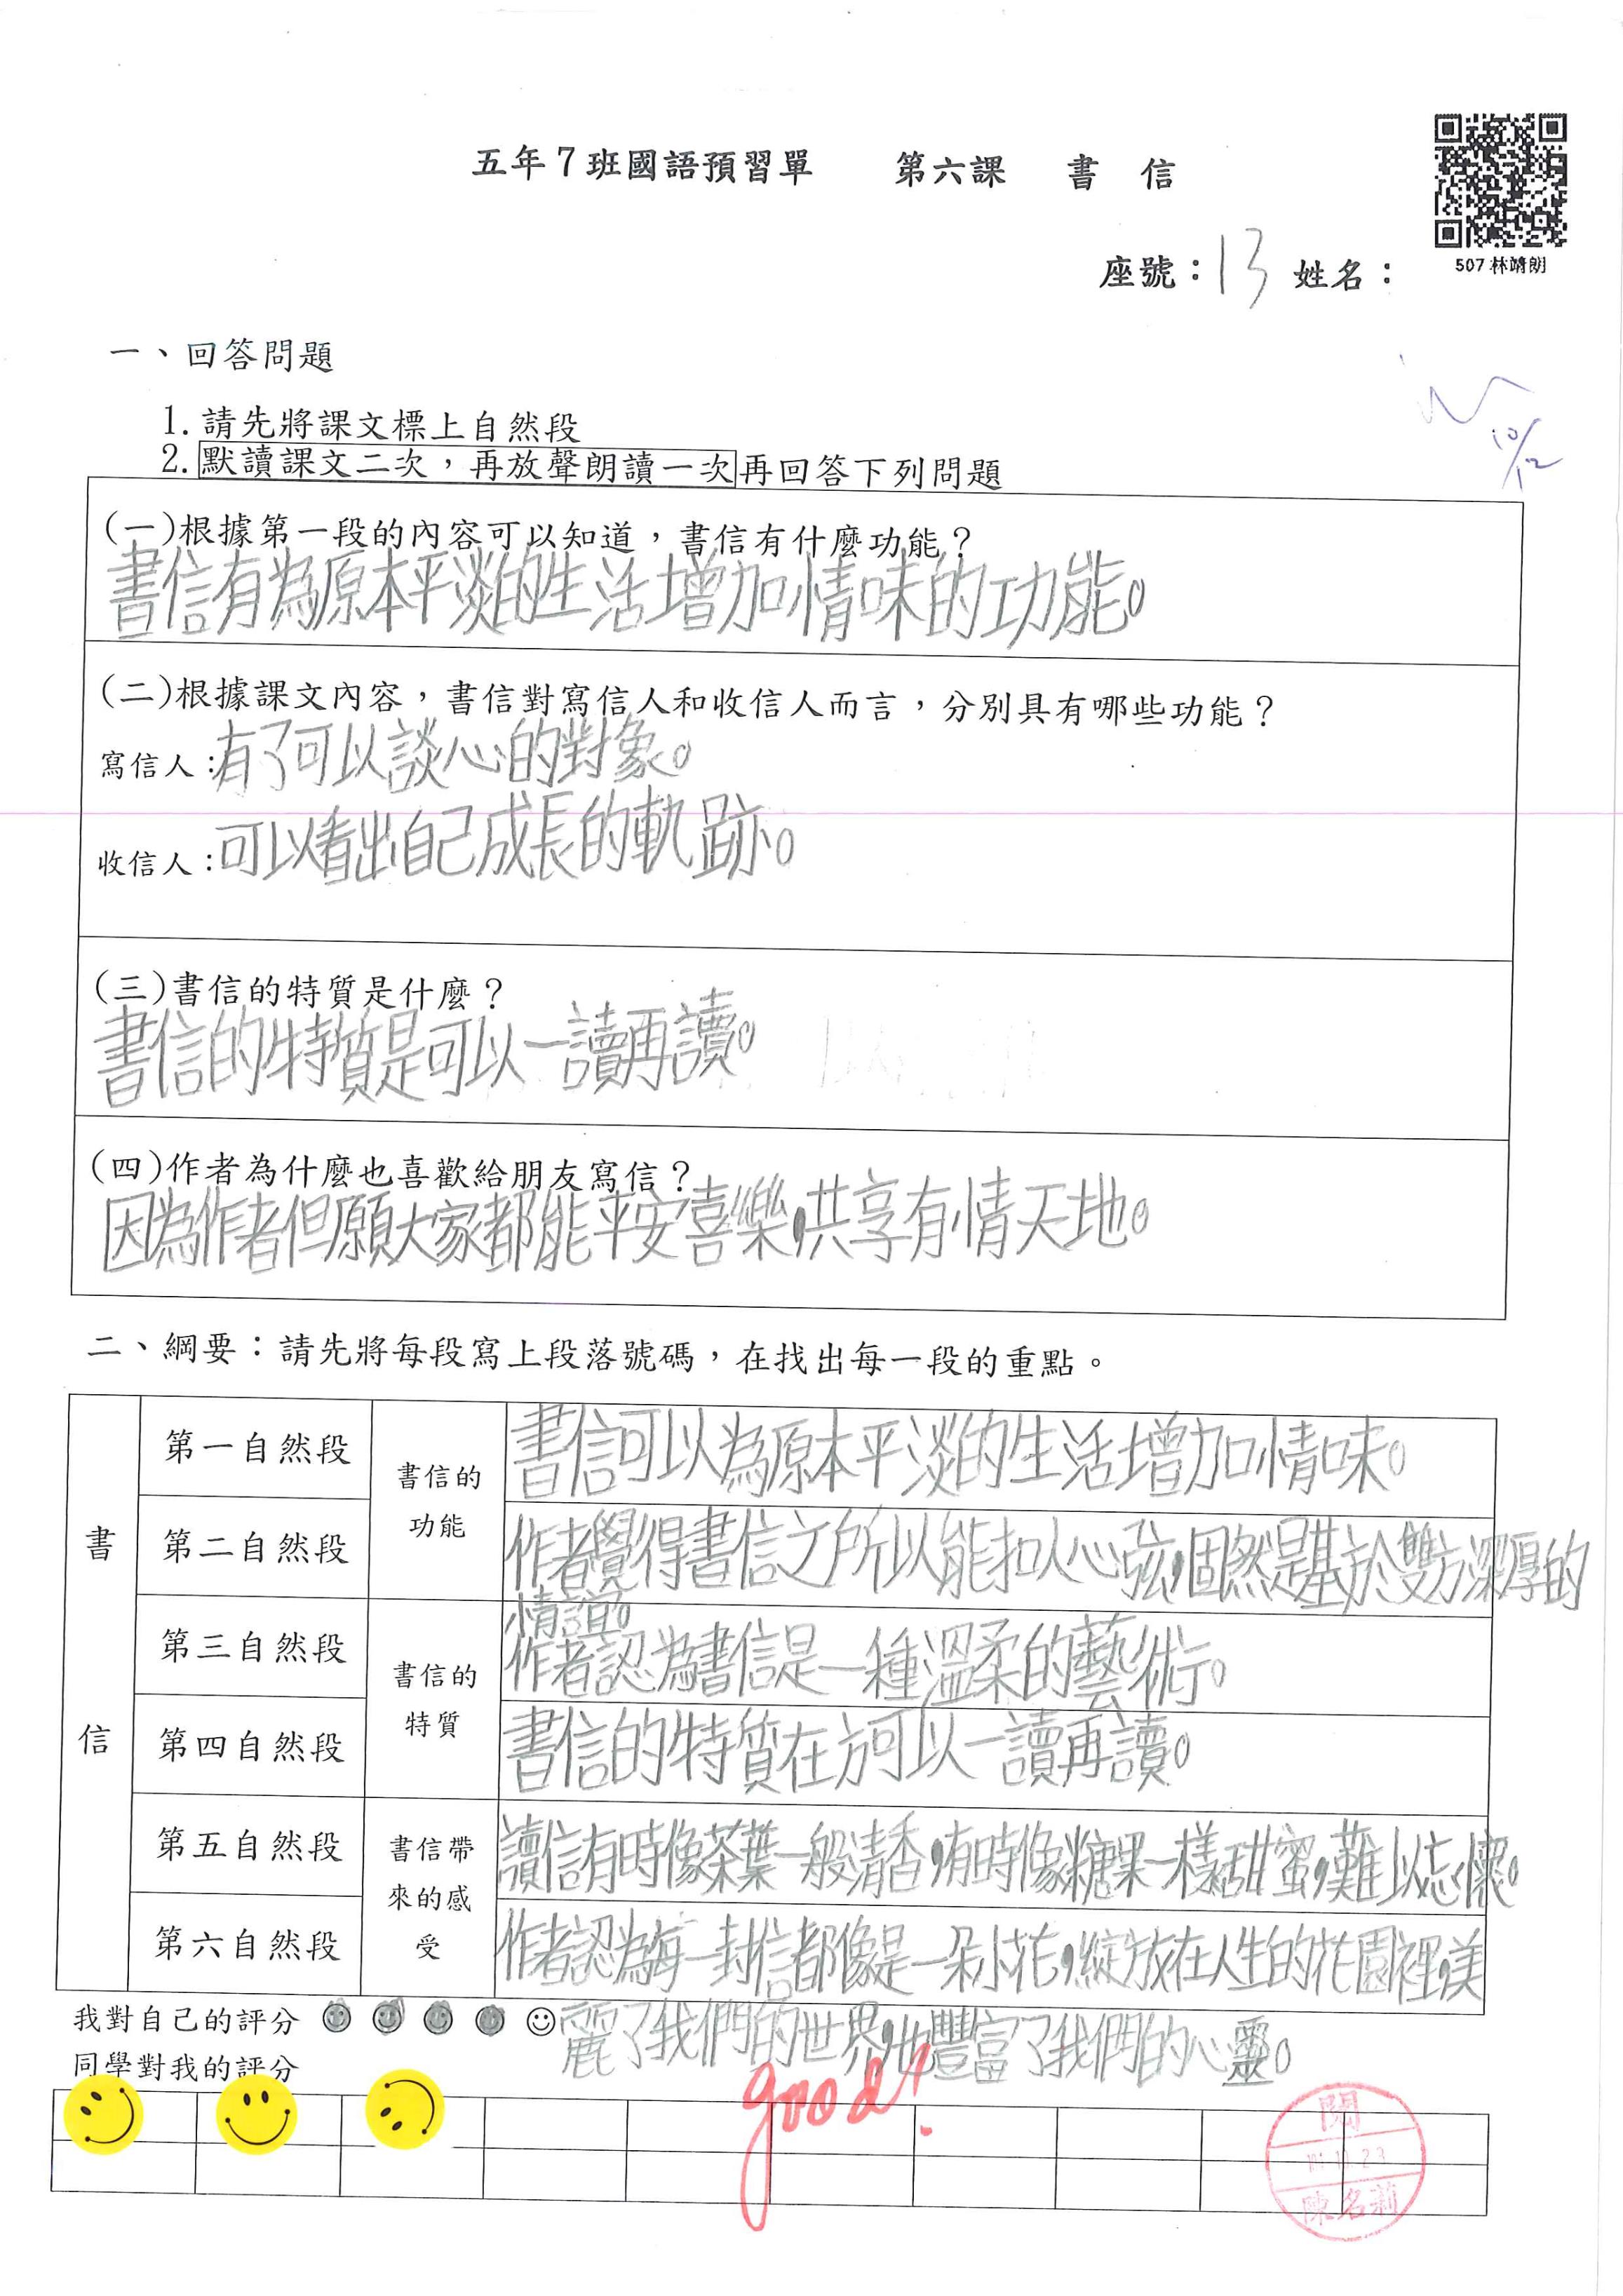 五年7班國語預習單　　第六課　　書　信
座號：13 姓名：
507林靖朗
一、回答問題
10/12
1.請先將課文標上自然段
2.默讀課文二次，再放聲朗讀一次再回答下列問題
(一)根據第一段的內容可以知道，書信有什麼功能？
書信有為原本平淡的生活增加情味的功能。
(二)根據課文內容，書信對寫信人和收信人而言，分別具有哪些功能？
寫信人：有了可以談心的對象。
收信人：可以看出自己成長的軌跡。
(三)書信的特質是什麼？
書信的特質是可以一讀再讀。
(四)作者為什麼也喜歡給朋友寫信？
因為作者但願大家都能平安喜樂，共享有情天地。
二、綱要：請先將每段寫上段落號碼，在找出每一段的重點。
書信
第一自然段
書信的功能
書信可以為原本平淡的生活增加情味。
第二自然段
作者覺得書信之所以能扣人心弦，固然是基於雙方深厚的
情誼。
第三自然段
書信的特質
作者認為書信是一種溫柔的藝術。
第四自然段
書信的特質在於可以一讀再讀。
第五自然段
書信帶來的感受
讀信有時像茶葉一般清香，有時像糖果一樣甜蜜，難以忘懷。
第六自然段
作者認為每一封信都像是一朵小花，綻放在人生的花園裡，美
麗了我們的世界，也豐富了我們的心靈。
我對自己的評分
同學對我的評分
good!
閱
陳名莉